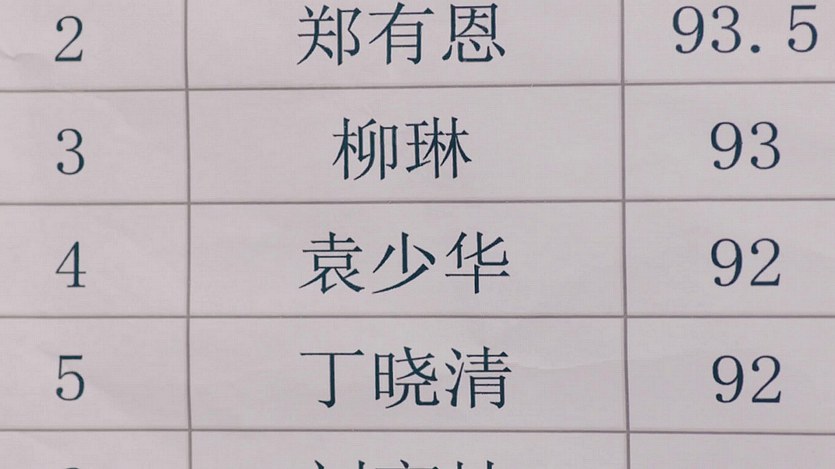 2 郑有恩 93.5
3 柳琳 93
4 袁少华 92
5 丁晓清 92